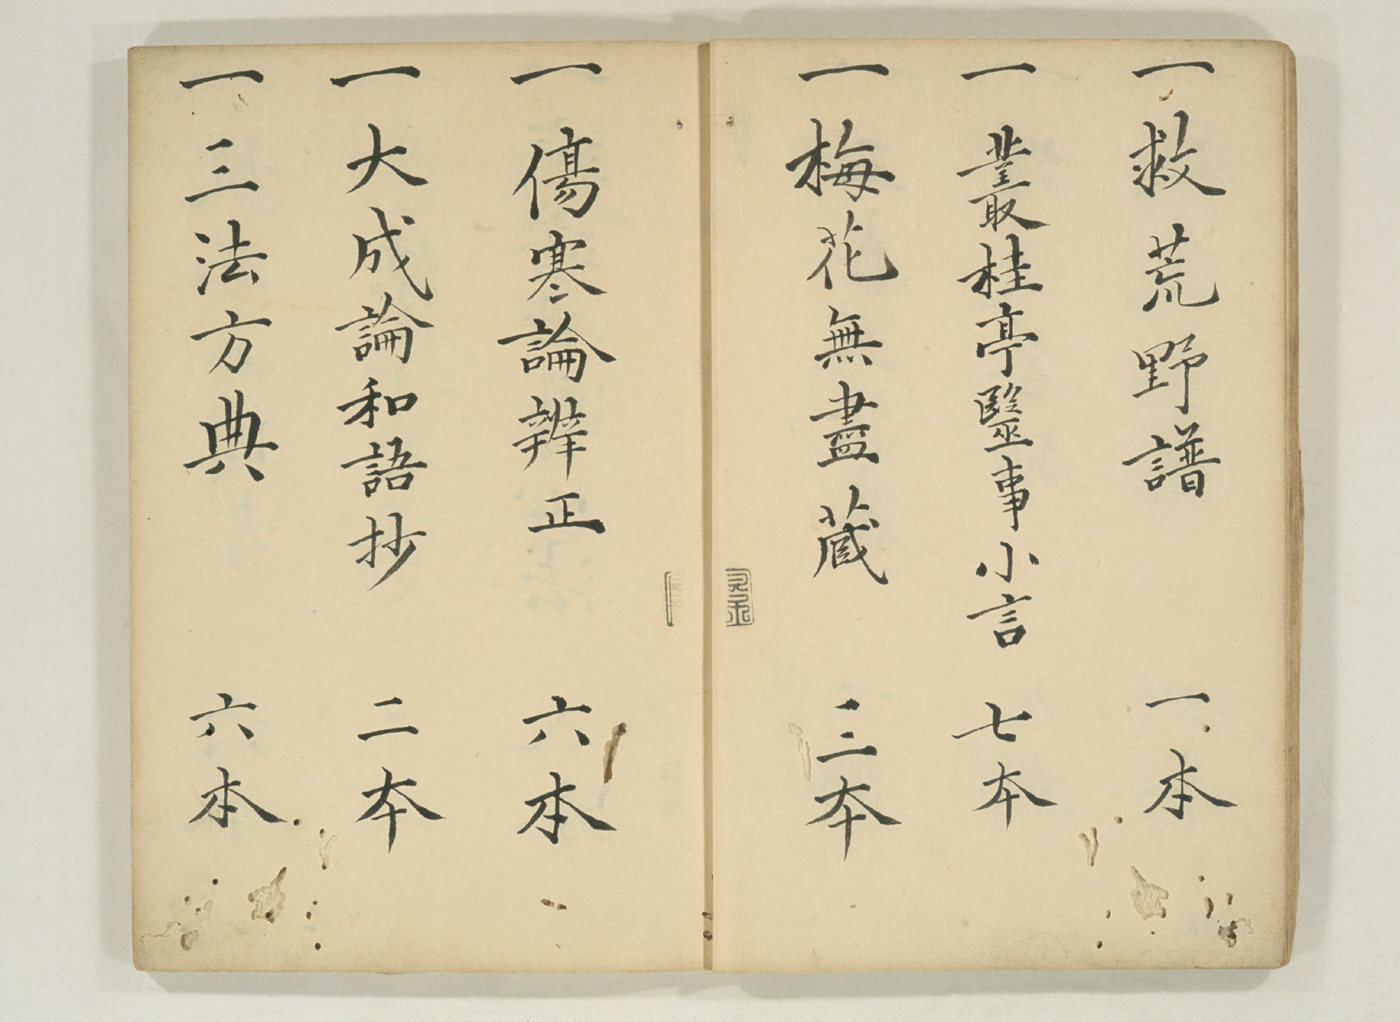 一救荒野譜 一本
一叢桂亭醫事小言 七本
一梅花無盡蔵 三本
一傷寒論辨正 六本
一大成論和語抄 二本
一三法方典 六本